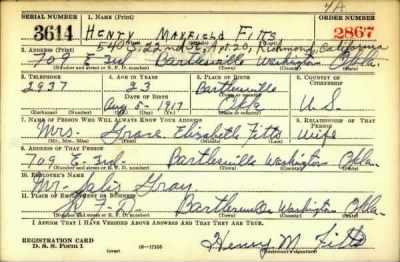 4A
SERIAL NUMBER 1. NAME (Print) ORDER NUMBER
3614 HENRY MAXFIELD FITTS 2867
540 S. 22nd St, Apt. 20, Richmond, California
2. ADDRESS (Print)
709 E 3rd Bartlesville Washington Okla.
(Number and street or R. F. D. number) (Town) (County) (State)
3. TELEPHONE 4. AGE IN YEARS 5. PLACE OF BIRTH 6. COUNTRY OF CITIZENSHIP
2937 23 Bartlesville
DATE OF BIRTH (Town or county)
Aug 5- 1917 Okla U.S.
(Exchange) (Number) (Mo.) (Day) (Yr.) (State or country)
7. NAME OF PERSON WHO WILL ALWAYS KNOW YOUR ADDRESS 8. RELATIONSHIP OF THAT PERSON
Mrs. Grace Elizabeth Fitts Wife
(Mr., Mrs., Miss) (First) (Middle) (Last)
9. ADDRESS OF THAT PERSON
709 E- 3rd- Bartlesville Washington Okla-
(Number and street or R. F. D. number) (Town) (County) (State)
10. EMPLOYER'S NAME
Mr- Gray
11. PLACE OF EMPLOYMENT OR BUSINESS
Bartlesville Washington Okla-
(Number and street or R. F. D. number) (Town) (County) (State)
I AFFIRM THAT I HAVE VERIFIED ABOVE ANSWERS AND THAT THEY ARE TRUE.
REGISTRATION CARD
D. S. S. Form 1 16-17105 Henry M Fitts
(Registrant's signature)